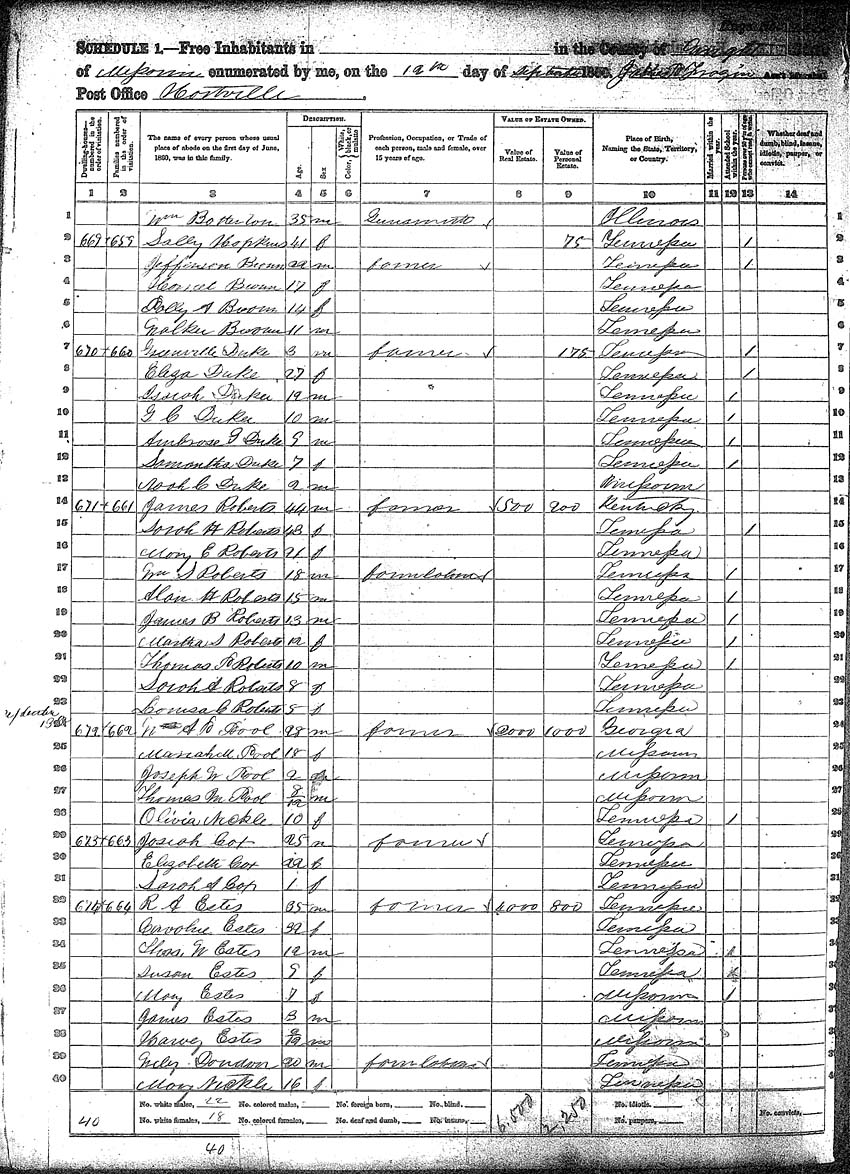 SCHEDULE 1.—Free Inhabitants in in the County of
of Missouri enumerated by me, on the 12th day of 1860.
Post Office
DESCRIPTION. VALUE OF ESTATE OWNED.
Dwelling-houses—numbered in the order of visitation. Families numbered in the order of visitation. The name of every person whose usual place of abode on the first day of June, 1860, was in this family. Age. Sex Color, White, black, or mulatto. Profession, Occupation, or Trade of each person, male and female, over 15 years of age. Value of Real Estate. Value of Personal Estate. Place of Birth, Naming the State, Territory, or Country. Married within the year. Attended School within the year. Whether deaf and dumb, blind, insane, idiotic, pauper, or convict.
1 2 3 4 5 6 7 8 9 10 11 12 13 14
1 Wm 35 m Gunsmith Illinois 1
2 669 659 Sally Hopkins 41 f 75 Tennessee 1
3 Jefferson Brown 22 m farmer Tennessee 1
4 Brown 17 f Tennessee
5 Polly A Brown 14 f Tennessee
6 Walker Brown 11 m Tennessee
7 670 660 Grenville Duke 3 m farmer 175 Tennessee 1
8 Eliza Duke 27 f Tennessee 1
9 Isaiah Duke 19 m Tennessee 1
10 G C Duke 10 m Tennessee 1
11 Ambrose Duke 9 m Tennessee 1
12 Samantha Duke 7 f Tennessee 1
13 Noah C Duke 2 m Missouri
14 671 661 James Roberts 44 m farmer 500 200 Kentucky
15 Sarah H Roberts 43 f Tennessee 1
16 Mary E Roberts 21 f Tennessee
17 Wm S Roberts 18 m farm laborer Tennessee 1
18 Alan H Roberts 15 m Tennessee 1
19 James B Roberts 13 m Tennessee 1
20 Martha S Roberts 12 f Tennessee 1
21 Thomas Roberts 10 m Tennessee 1
22 Sarah A Roberts 8 f Tennessee
23 Louisa C Roberts 5 f Tennessee
24 672 662 Pool 28 m farmer 2000 1000 Georgia
25 Pool 18 f Missouri
26 Joseph W Pool 2 m Missouri
27 Thomas M Pool 8/12 m Missouri
28 Olivia Nickle 10 f Tennessee 1
29 673 663 Josiah Cox 25 m farmer Tennessee
30 Elizabeth Cox 22 f Tennessee
31 Sarah A Cox 1 f Tennessee
32 674 664 R A Estes 35 m farmer 4000 800 Tennessee
33 Caroline Estes 32 f Tennessee
34 Thos W Estes 12 m Tennessee
35 Susan Estes 9 f Tennessee
36 Mary Estes 7 f Missouri 1
37 James Estes 3 m Missouri
38 Harvey Estes m Missouri
39 Wiley 20 m farm laborer Tennessee
40 Mary Nickle 16 f Tennessee
40 No. white males, 22 No. colored males, No. foreign born, No. blind, 6.500 2,250 No. idiotic,
No. white females, 18 No. colored females, No. deaf and dumb, No. insane, No. paupers, No. convicts,
40